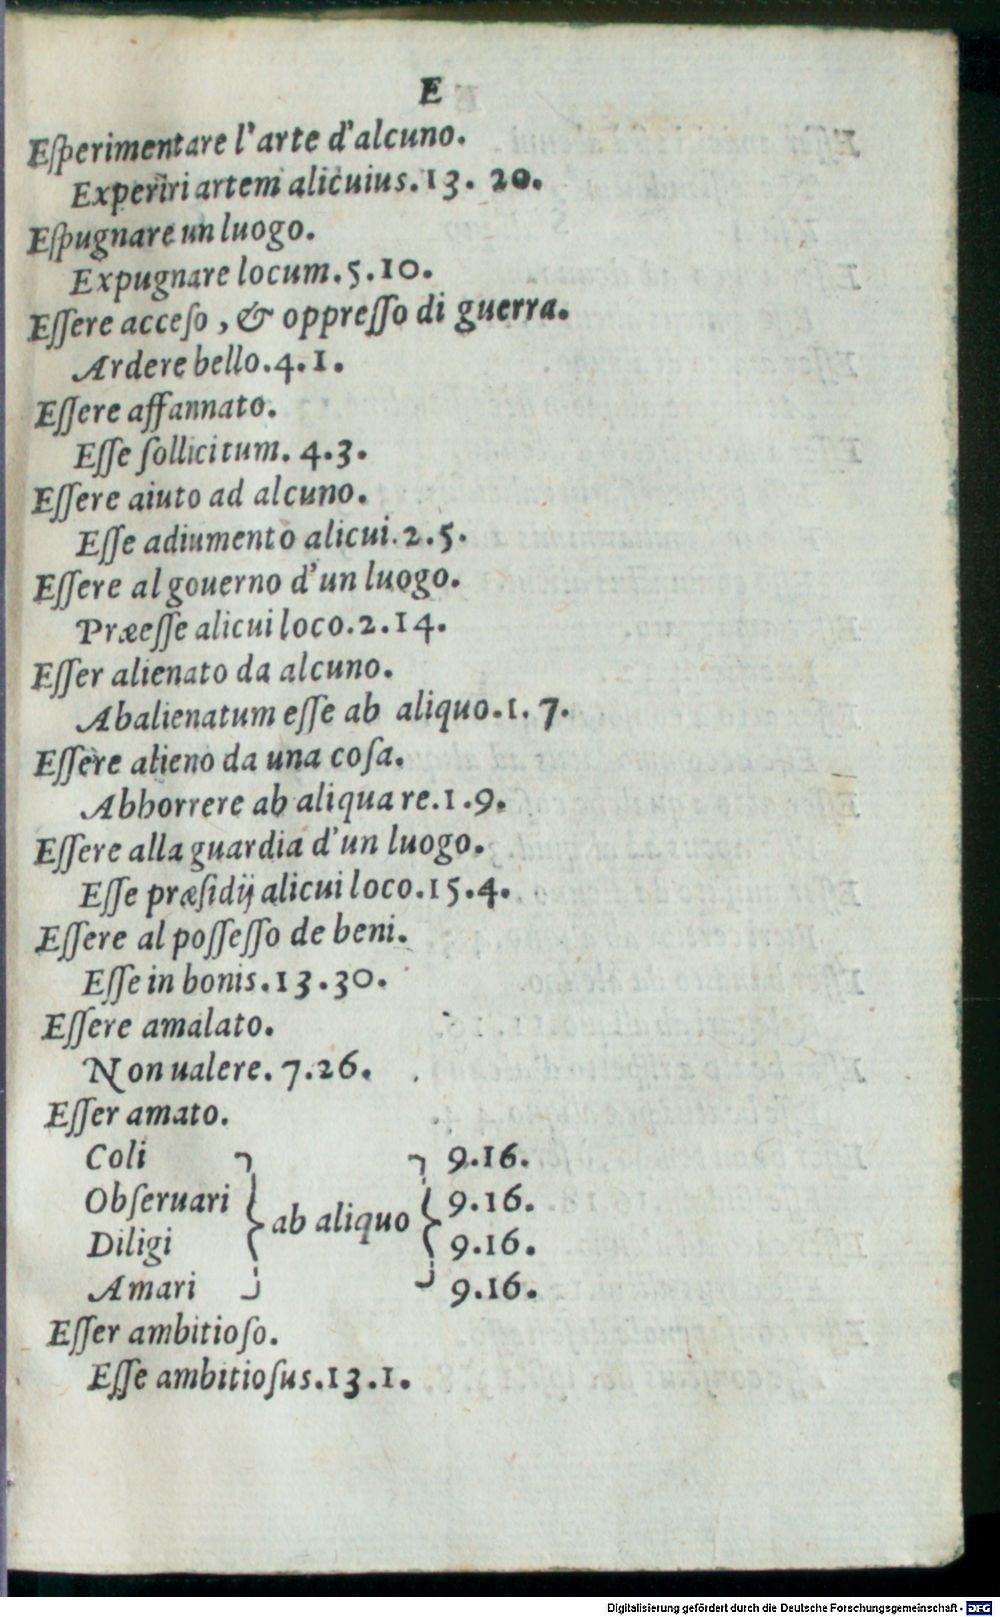 E
Eſperimentare l'arte d'alcuno.
Experiri artem alicuius.13. 20.
Eſpugnare un luogo.
Expugnare locum.5.10.
Eſſere acceſo, & oppreſſo di guerra.
Ardere bello.4.1.
Eſſere affannato.
Eſſe ſollicitum. 4.3.
Eſſere aiuto ad alcuno.
Eſſe adiumento alicui.2.5.
Eſſere al gouerno d'un luogo.
Præeſſe alicui loco.2.14.
Eſſer alienato da alcuno.
Abalienatum eſſe ab aliquo.1.7.
Eſſere alieno da una coſa.
Abhorrere ab aliqua re.1.9.
Eſſere alla guardia d'un luogo.
Eſſe præſidij alicui loco.15.4.
Eſſere al poſſeſſo de beni.
Eſſe in bonis.13.30.
Eſſere amalato.
Non ualere.7.26.
Eſſer amato.
Coli 9.16.
Obſeruari 9.16.
ab aliquo
Diligi 9.16.
Amari 9.16.
Eſſer ambitioſo.
Eſſe ambitioſus.13.1.
Digitalisierung gefördert durch die Deutsche Forschungsgemeinschaft - DFG